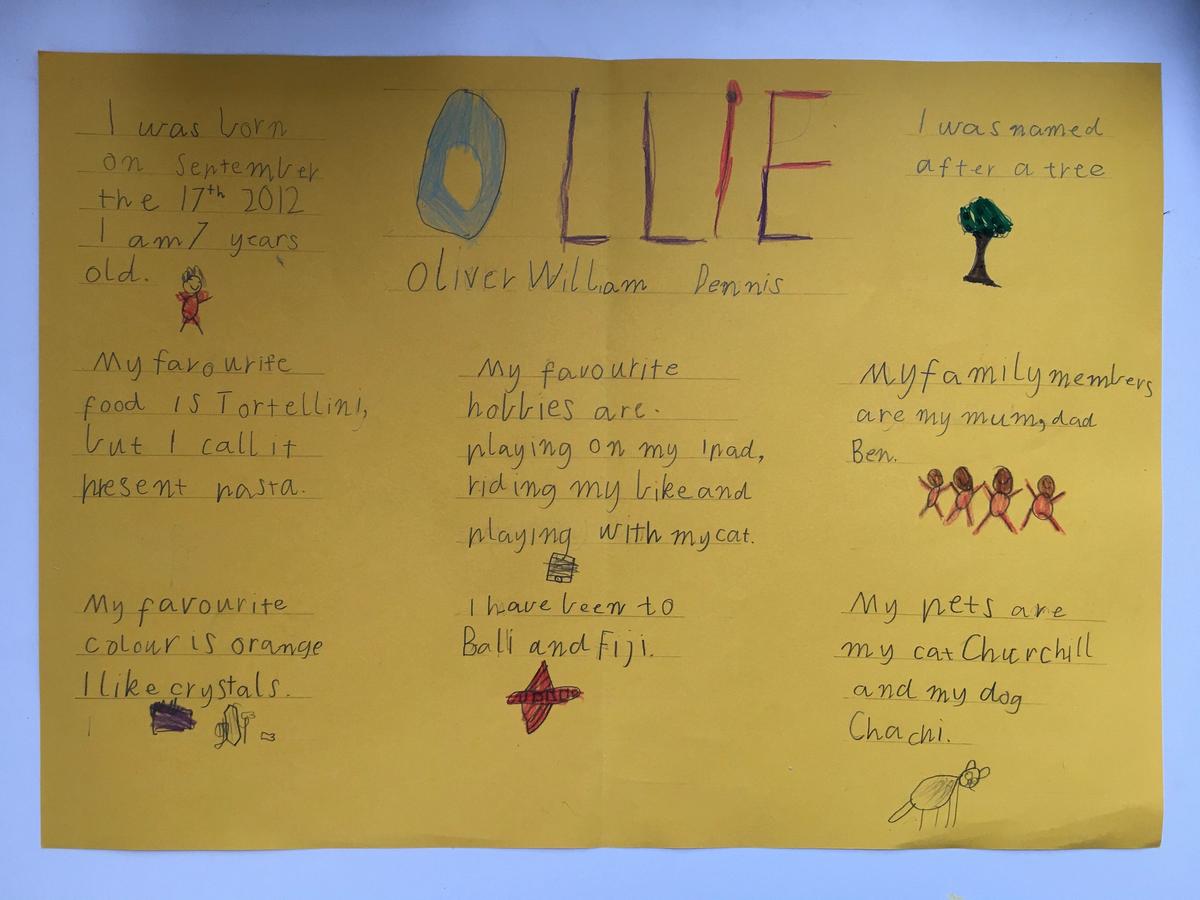 OLLIE
Oliver William Dennis
I was born
on September
the 17th 2012
I am 7 years
old.
I was named
after a tree
My favourite
food is Tortellini,
but I call it
present pasta.
My favourite
hobbies are.
playing on my Ipad,
riding my bike and
playing with my cat.
My family members
are my mum, dad
Ben.
My favourite
colour is orange
I like crystals.
I have been to
Bali and Fiji.
My pets are
my cat Churchill
and my dog
Chachi.